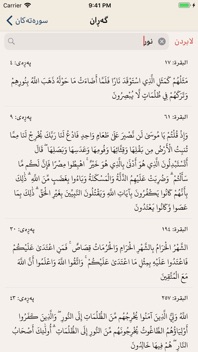 Carrier 9:41 PM
گەڕان
سورەتەکان
نور
لابردن
البقرة: ١٧
پەڕەی: ٤
مَثَلُهُمْ كَمَثَلِ الَّذِي اسْتَوْقَدَ نَارًا فَلَمَّا أَضَاءَتْ مَا حَوْلَهُ ذَهَبَ اللَّهُ بِنُورِهِمْ
وَتَرَكَهُمْ فِي ظُلُمَاتٍ لَّا يُبْصِرُونَ
البقرة: ٦١
پەڕەی: ٩
وَإِذْ قُلْتُمْ يَا مُوسَىٰ لَن نَّصْبِرَ عَلَىٰ طَعَامٍ وَاحِدٍ فَادْعُ لَنَا رَبَّكَ يُخْرِجْ لَنَا مِمَّا
تُنبِتُ الْأَرْضُ مِن بَقْلِهَا وَقِثَّائِهَا وَفُومِهَا وَعَدَسِهَا وَبَصَلِهَا ۖ قَالَ
أَتَسْتَبْدِلُونَ الَّذِي هُوَ أَدْنَىٰ بِالَّذِي هُوَ خَيْرٌ ۚ اهْبِطُوا مِصْرًا فَإِنَّ لَكُم مَّا
سَأَلْتُمْ ۗ وَضُرِبَتْ عَلَيْهِمُ الذِّلَّةُ وَالْمَسْكَنَةُ وَبَاءُوا بِغَضَبٍ مِّنَ اللَّهِ ۗ ذَٰلِكَ
بِأَنَّهُمْ كَانُوا يَكْفُرُونَ بِآيَاتِ اللَّهِ وَيَقْتُلُونَ النَّبِيِّينَ بِغَيْرِ الْحَقِّ ۗ ذَٰلِكَ بِمَا
عَصَوا وَّكَانُوا يَعْتَدُونَ
البقرة: ١٩٤
پەڕەی: ٣٠
الشَّهْرُ الْحَرَامُ بِالشَّهْرِ الْحَرَامِ وَالْحُرُمَاتُ قِصَاصٌ ۚ فَمَنِ اعْتَدَىٰ عَلَيْكُمْ
فَاعْتَدُوا عَلَيْهِ بِمِثْلِ مَا اعْتَدَىٰ عَلَيْكُمْ ۚ وَاتَّقُوا اللَّهَ وَاعْلَمُوا أَنَّ اللَّهَ
مَعَ الْمُتَّقِينَ
البقرة: ٢٥٧
پەڕەی: ٤٣
اللَّهُ وَلِيُّ الَّذِينَ آمَنُوا يُخْرِجُهُم مِّنَ الظُّلُمَاتِ إِلَى النُّورِ ۖ وَالَّذِينَ كَفَرُوا
أَوْلِيَاؤُهُمُ الطَّاغُوتُ يُخْرِجُونَهُم مِّنَ النُّورِ إِلَى الظُّلُمَاتِ ۗ أُولَٰئِكَ أَصْحَابُ
النَّارِ ۖ هُمْ فِيهَا خَالِدُونَ